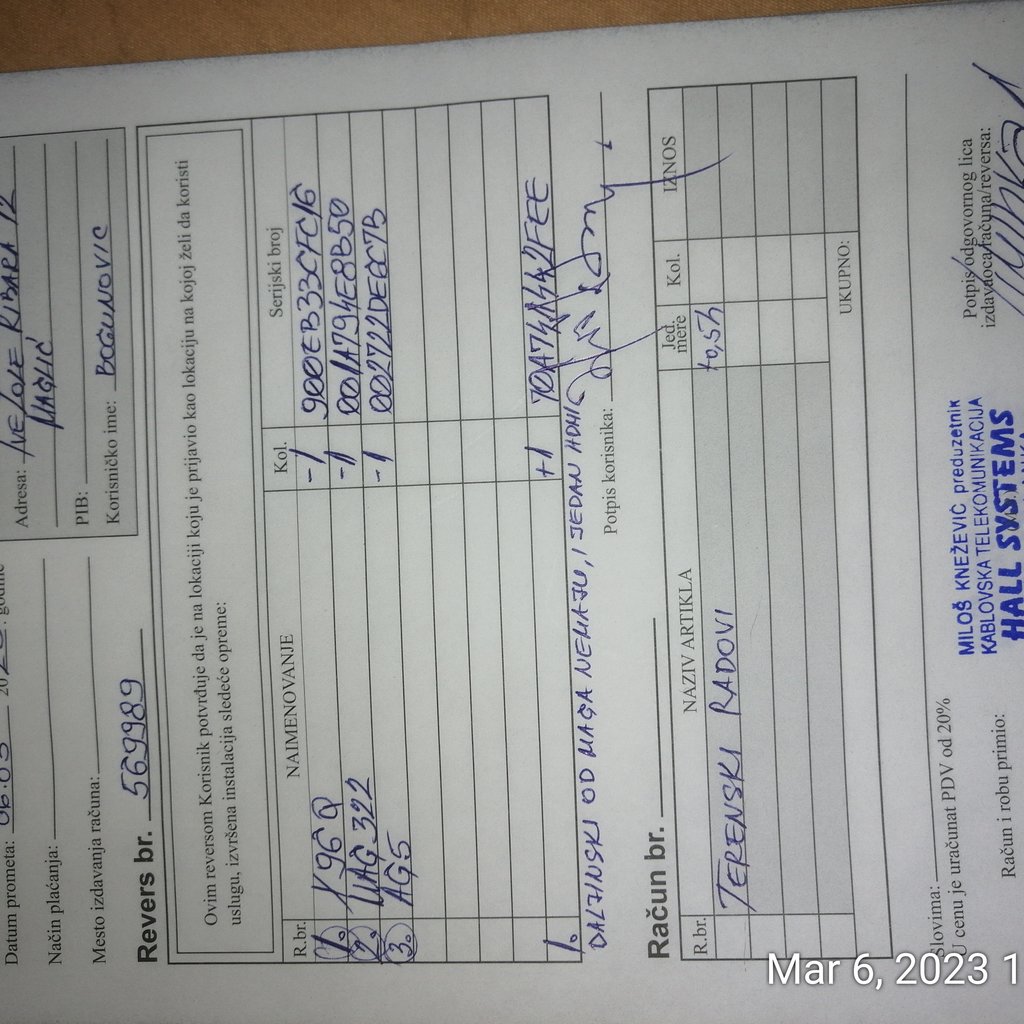 Datum prometa: 06.03 20 . godine
Način plaćanja:
Mesto izdavanja računa:
Adresa: IVE LOLE RIBARA 12
MAGLIĆ
PIB:
Korisničko ime: BOGUNOVIC
Revers br. 569989
Ovim reversom Korisnik potvrđuje da je na lokaciji koju je prijavio kao lokaciju na kojoj želi da koristi
uslugu, izvršena instalacija sledeće opreme:
R.br. NAIMENOVANJE Kol. Serijski broj
1. X96Q -1 900EB33CFC16
2. MAG 322 -1 001A794E8B50
3. AG5 -1 002722DEEC7B
1. +1 70A741A442FEE
DALJINSKI OD MAGA NEMAJU, I JEDAN HDMI
Potpis korisnika:
Račun br.
R.br. NAZIV ARTIKLA Jed. mere Kol. IZNOS
TERENSKI RADOVI +0,5h
UKUPNO:
Slovima:
U cenu je uračunat PDV od 20%
Račun i robu primio:
MILOŠ KNEŽEVIĆ preduzetnik
KABLOVSKA TELEKOMUNIKACIJA
HALL SYSTEMS
Potpis odgovornog lica
izdavaoca računa/reversa:
Mar 6, 2023 1